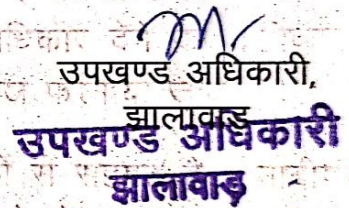 उपखण्ड अधिकारी,
झालावाड
उपखण्ड अधिकारी
झालावाड़